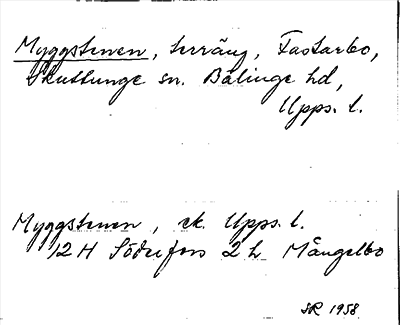 Myggstenen, terräng, Fastarbo,
Skuttunge sn. Bälinge hd,
Upps. l.
Myggstenen, ek. Upps. l.
12 H Söderfors 2 h Mångelbo
SR 1958